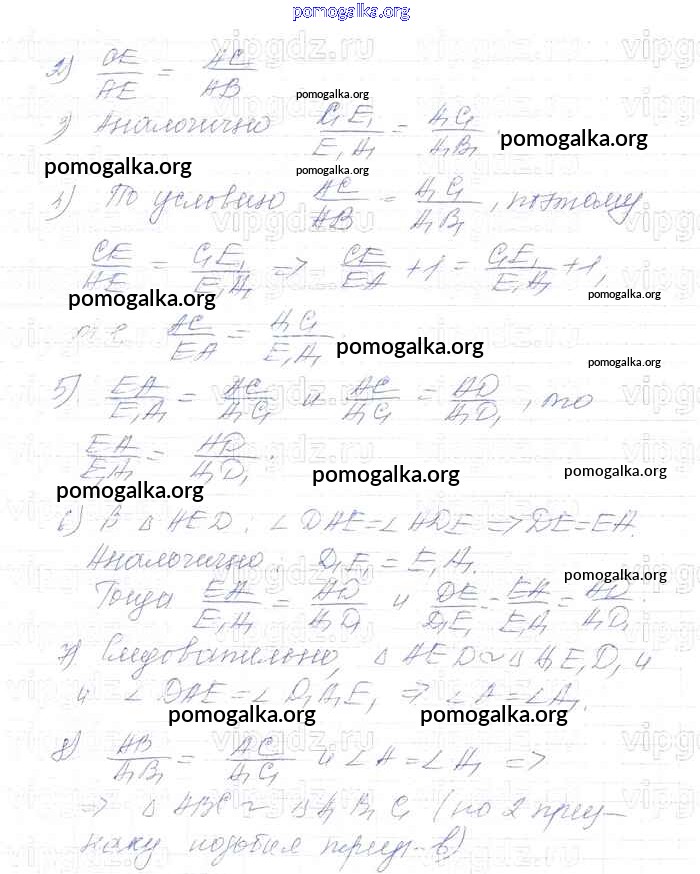 pomogalka.org
2) CE/AE = AC/AB
pomogalka.org
3) Аналогично C₁E₁/E₁A₁ = A₁C₁/A₁B₁
pomogalka.org
pomogalka.org
pomogalka.org
4) По условию AC/AB = A₁C₁/A₁B₁, поэтому
CE/AE = C₁E₁/E₁A₁ => CE/EA + 1 = C₁E₁/E₁A₁ + 1,
pomogalka.org
pomogalka.org
т.е. AC/EA = A₁C₁/E₁A₁
pomogalka.org
pomogalka.org
5) EA/E₁A₁ = AC/A₁C₁ и AC/A₁C₁ = AD/A₁D₁, то
EA/E₁A₁ = AD/A₁D₁.
pomogalka.org
pomogalka.org
pomogalka.org
6) В △ AED: ∠DAE = ∠ADE => DE = EA.
Аналогично: D₁E₁ = E₁A₁.
pomogalka.org
Тогда EA/E₁A₁ = AD/A₁D₁ и DE/D₁E₁ = EA/E₁A₁ = AD/A₁D₁
7) Следовательно, △ AED ~ △ A₁E₁D₁ и
и ∠ DAE = ∠ D₁A₁E₁ => ∠A = ∠A₁.
pomogalka.org
pomogalka.org
8) AB/A₁B₁ = AC/A₁C₁ и ∠A = ∠A₁ =>
=> △ ABC ~ △ A₁B₁C₁ (по 2 приз-
наку подобия треуг-в)